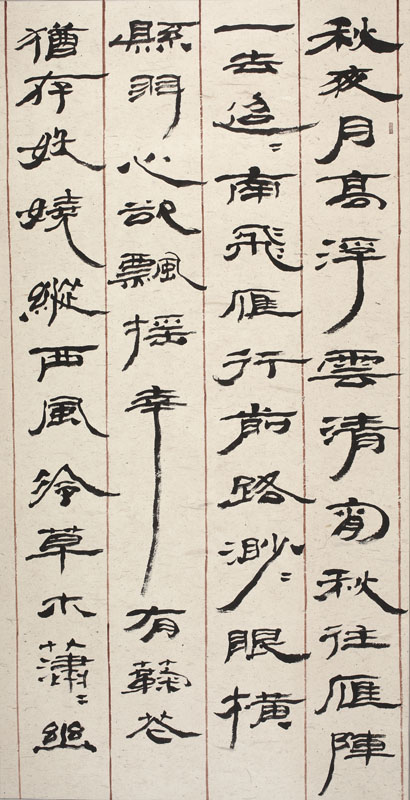 秋夜月高浮雲清宵秋往雁陣
一去迢〻南飛雁行前路渺〻眼橫
縣羽心欲飄搖幸有花
猶存妖嬈縱西風冷草木蕭〻